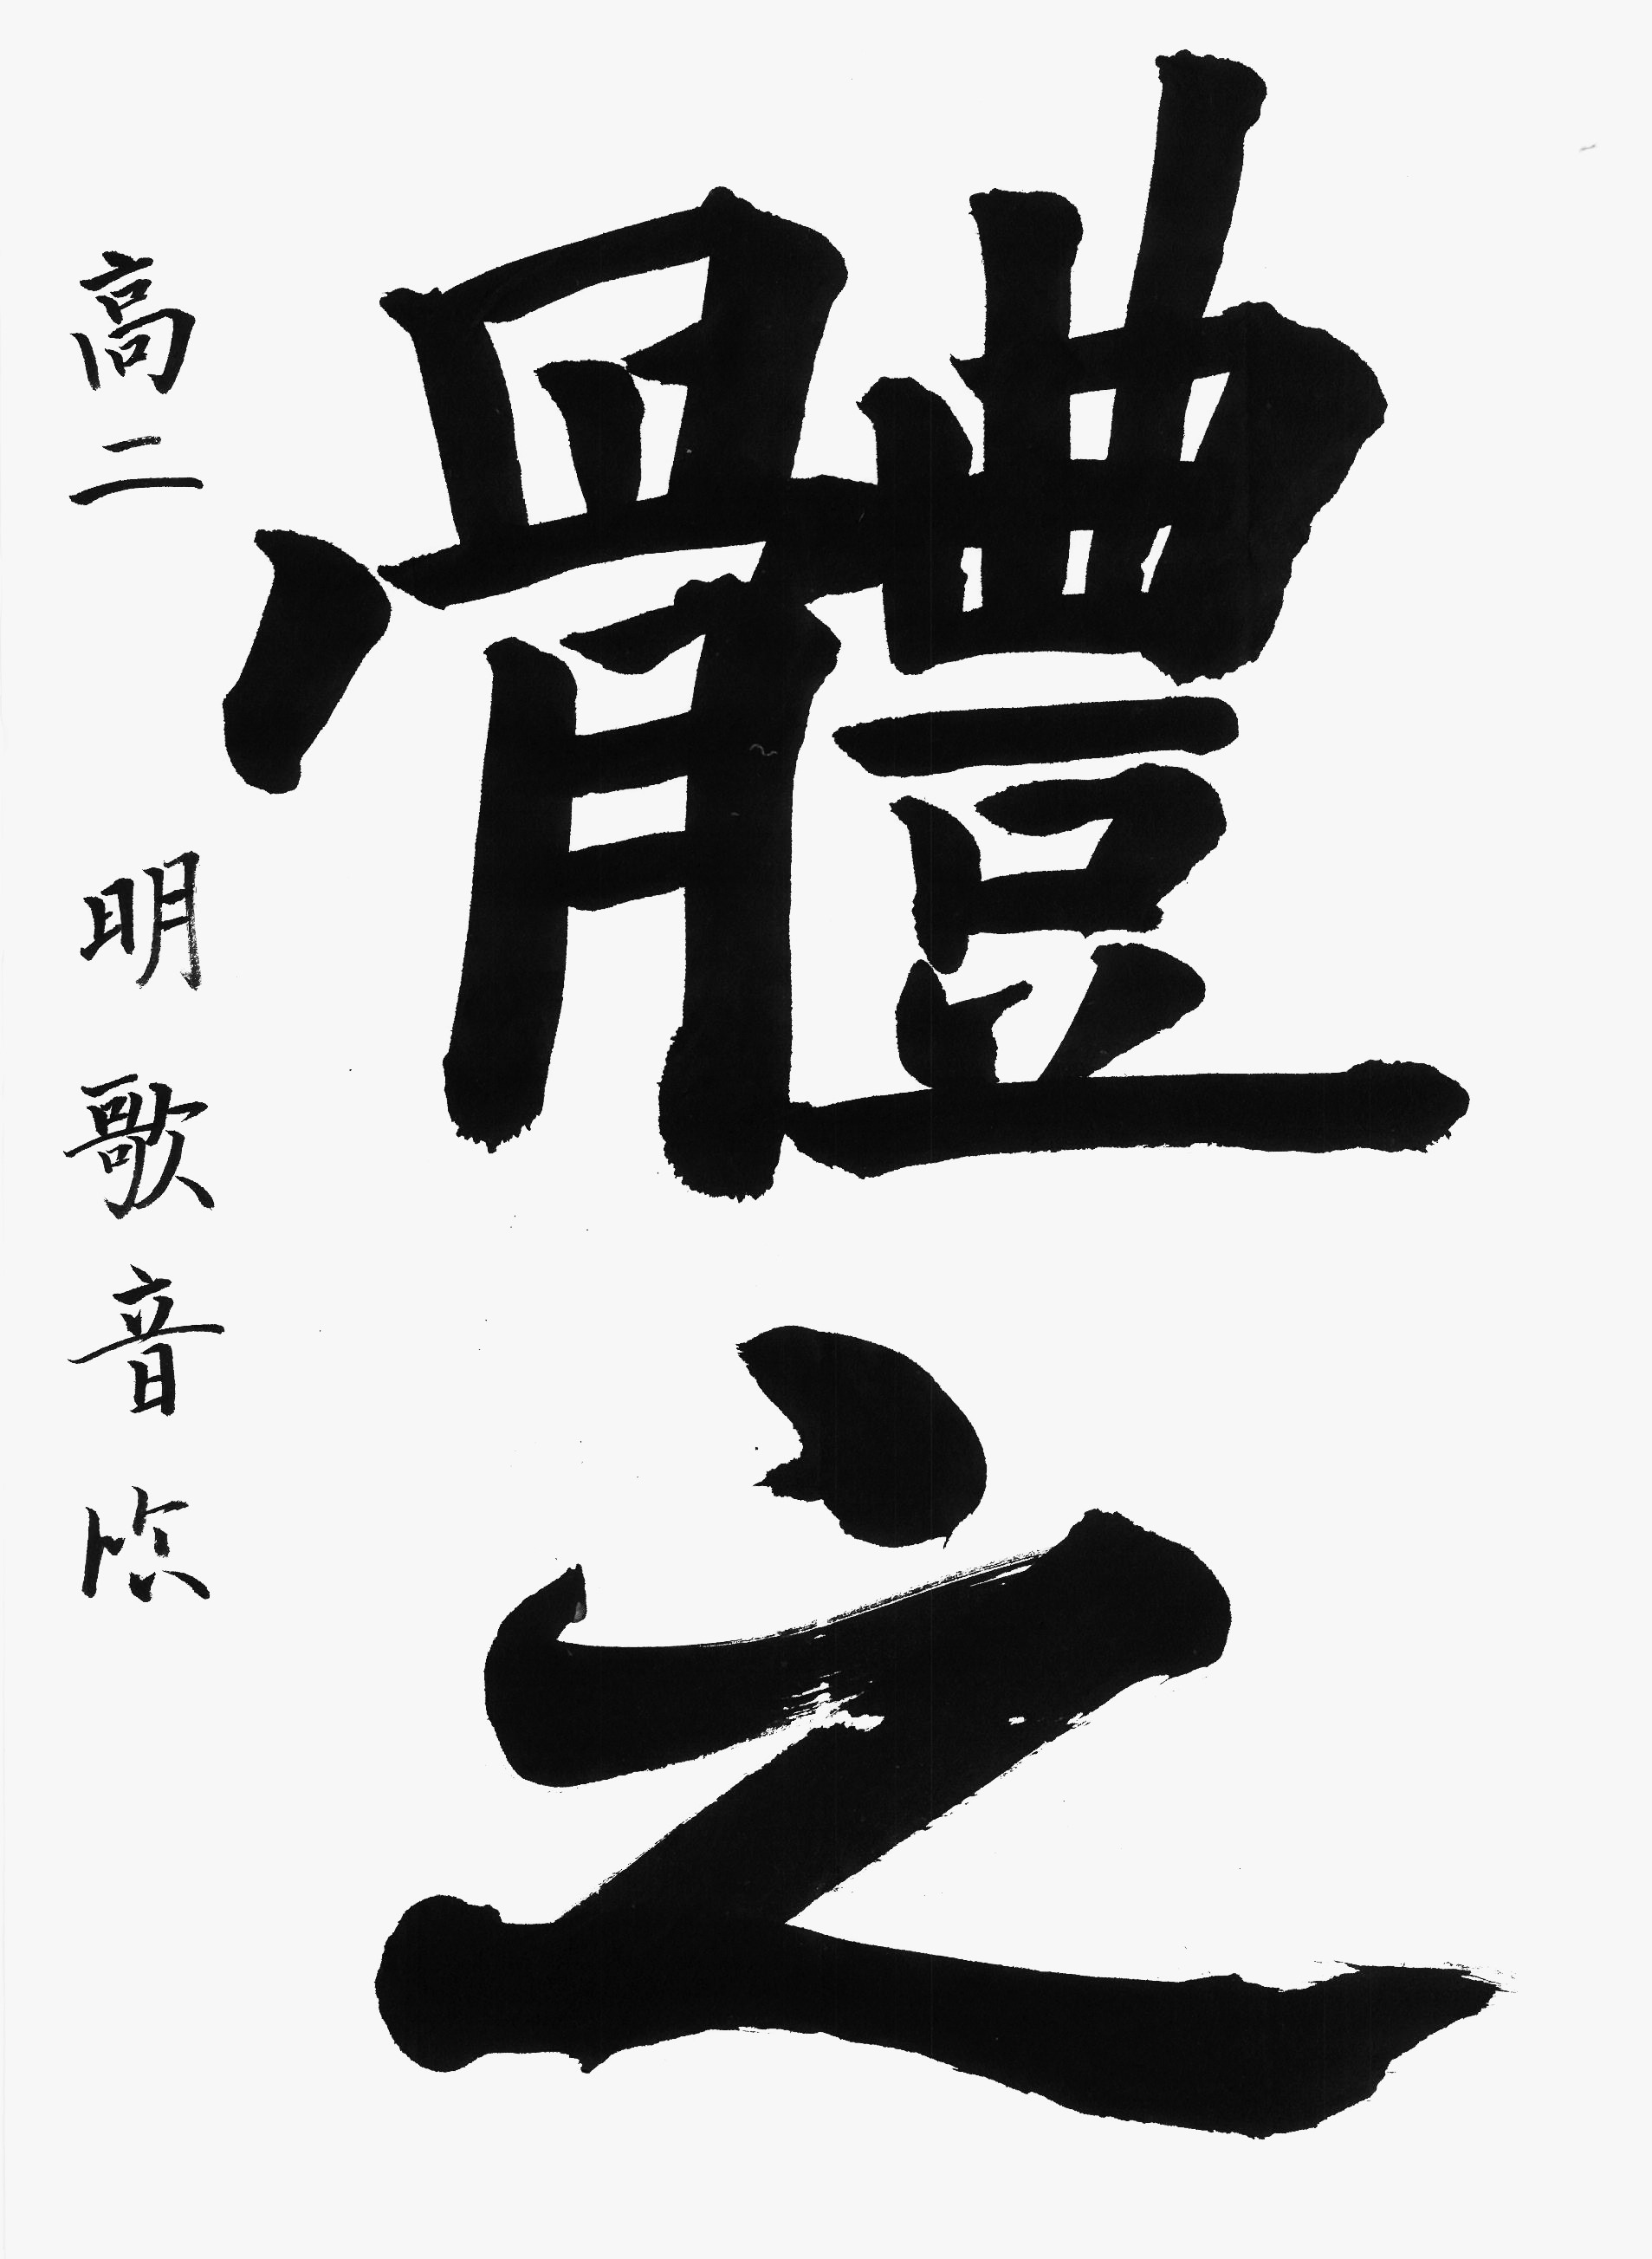 體之
高二 明歌音臨